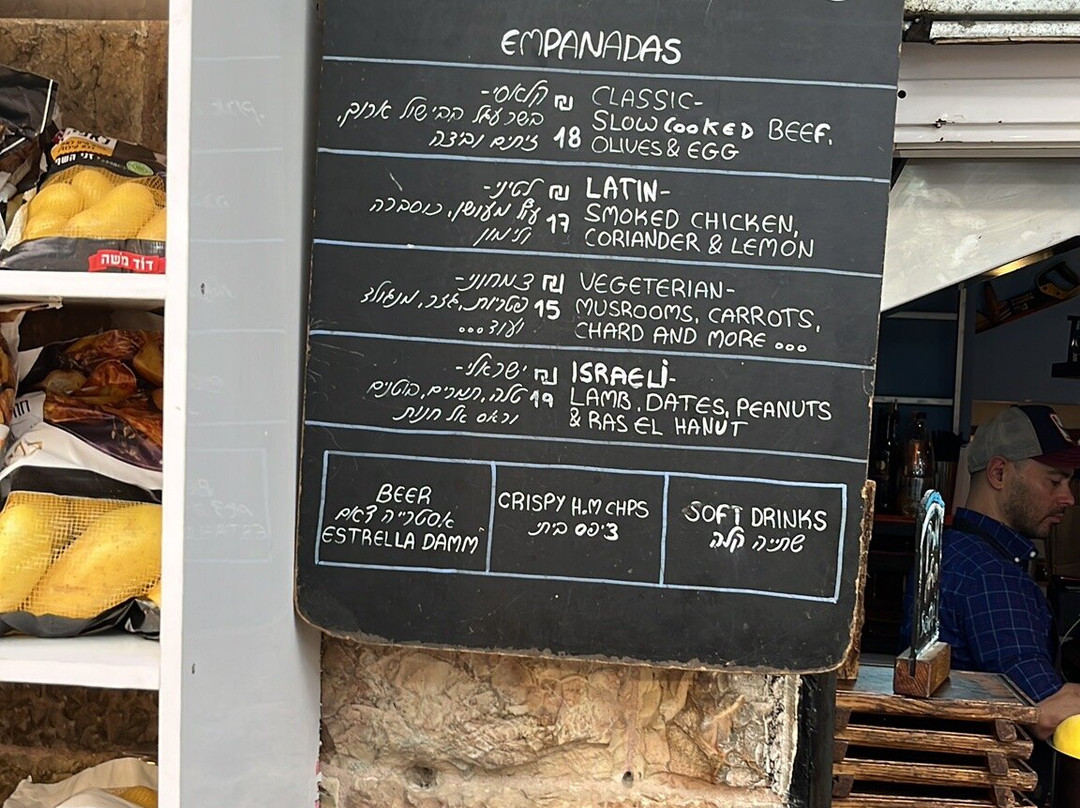 EMPANADAS
קלאסי-
בשר עגל בבישול ארוך,
זיתים וביצה
₪
18
CLASSIC-
SLOW COOKED BEEF,
OLIVES & EGG
לטיני-
עוף מעושן, כוסברה
ולימון
₪
17
LATIN-
SMOKED CHICKEN,
CORIANDER & LEMON
צמחוני-
פטריות, גזר, מנגולד
ועוד...
₪
15
VEGETERIAN-
MUSROOMS, CARROTS,
CHARD AND MORE ...
ישראלי-
טלה, תמרים, בוטנים
וראס אל חנות
₪
19
ISRAELI-
LAMB, DATES, PEANUTS
& RAS EL HANUT
BEER
אסטרייה דאם
ESTRELLA DAMM
CRISPY H.M CHPS
צ׳יפס ביתי
SOFT DRINKS
שתייה קלה
דוד משה